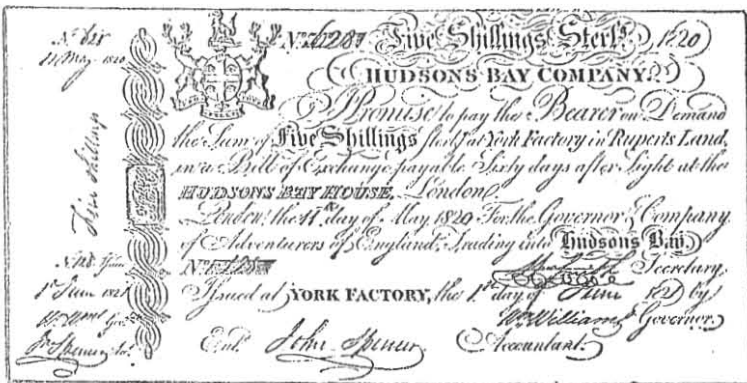 12 May 1820
Five Shillings
Five Shillings Sterlg. 1820
HUDSONS BAY COMPANY.
I Promise to pay the Bearer on Demand
the Sum of Five Shillings Sterlg. at York Factory in Ruperts Land,
in a Bill of Exchange payable Sixty days after Sight at the
HUDSONS BAY HOUSE, London.
London, the 11th day of May 1820 For the Governor & Company
of Adventurers of England, Trading into Hudsons Bay
Secretary.
1st June 1821
Issued at YORK FACTORY, the 1st day of June 1821 by
Wm. Williams Governor.
Entd. John Spencer Accountant.